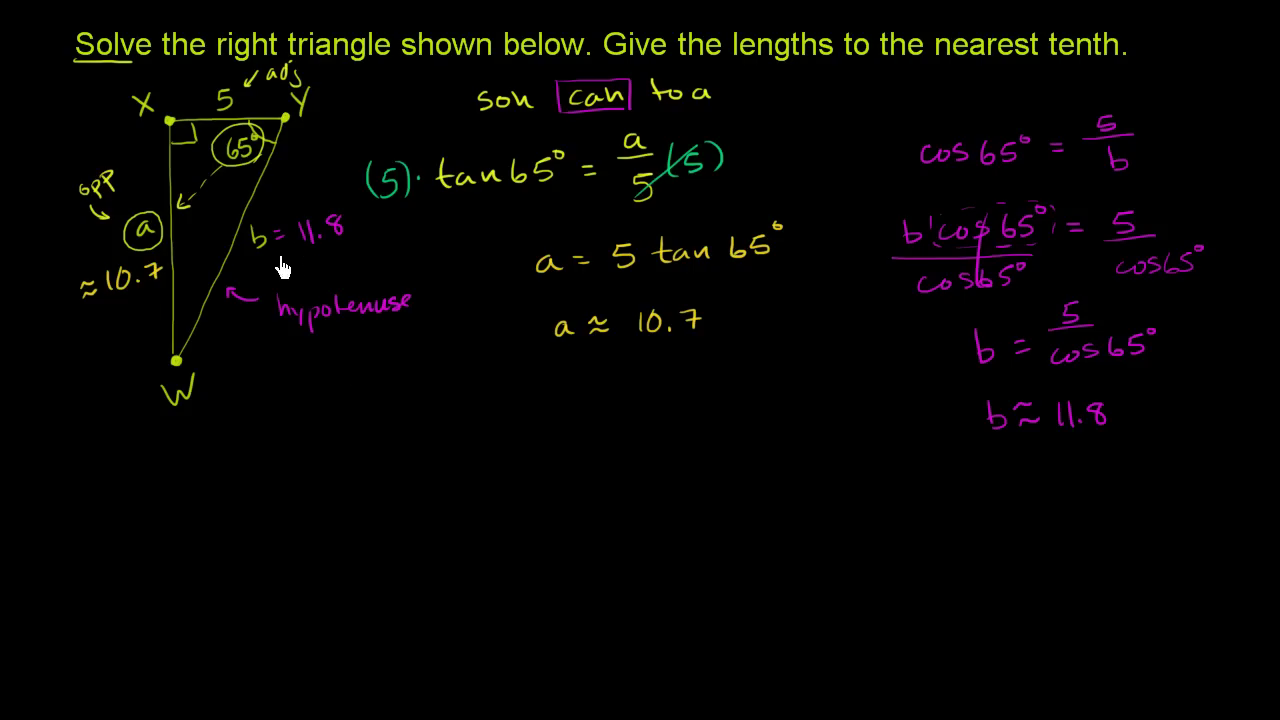 Solve the right triangle shown below. Give the lengths to the nearest tenth.
adj
X 5 Y
65°
opp
a
≈ 10.7
b = 11.8
hypotenuse
W
soh cah toa
(5) · tan 65° = a/5 (5)
a = 5 tan 65°
a ≈ 10.7
cos 65° = 5/b
b · cos 65° / cos 65° = 5 / cos 65°
b = 5 / cos 65°
b ≈ 11.8